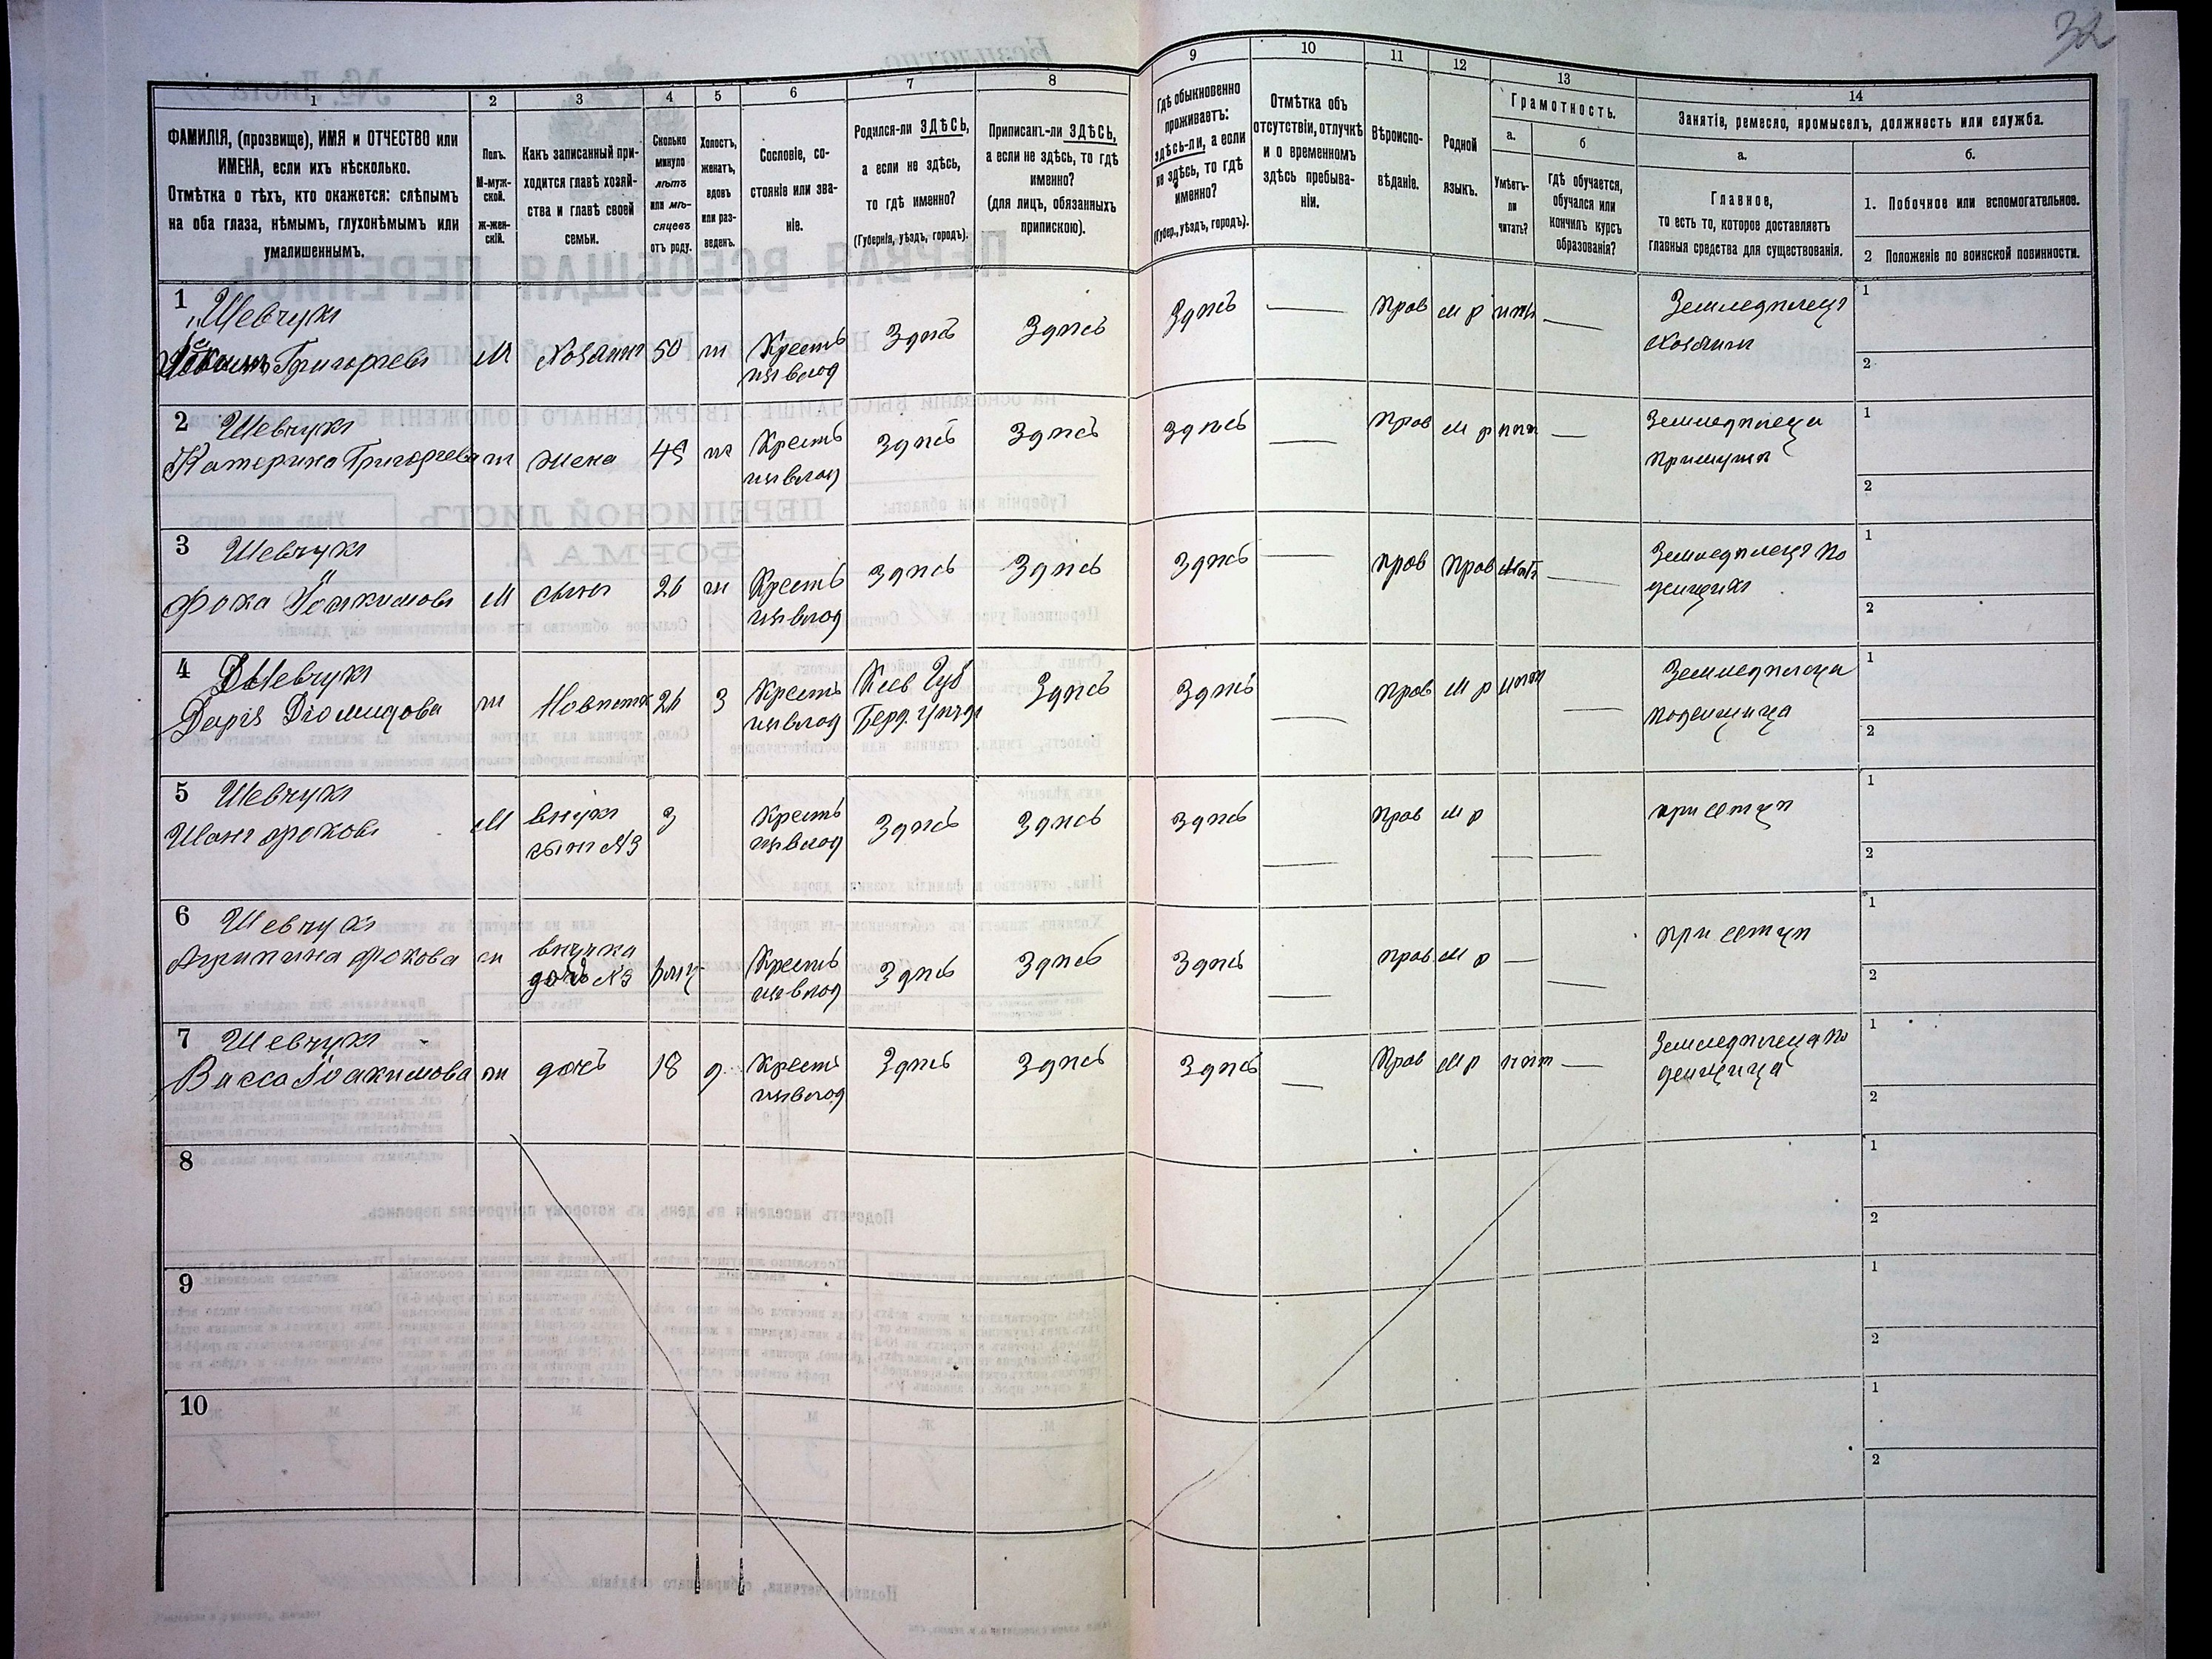 32
1
2
3
4
5
6
7
8
9
10
11
12
13
14
ФАМИЛІЯ, (прозвище), ИМЯ и ОТЧЕСТВО или
ИМЕНА, если ихъ нѣсколько.
Отмѣтка о тѣхъ, кто окажется: слѣпымъ
на оба глаза, нѣмымъ, глухонѣмымъ или
умалишеннымъ.
Полъ.
М-муж-
ской.
ж-жен-
скій.
Какъ записанный при-
ходится главѣ хозяй-
ства и главѣ своей
семьи.
Сколько
минуло
лѣтъ
или мѣ-
сяцевъ
отъ роду.
Холостъ,
женатъ,
вдовъ
или раз-
веденъ.
Сословіе, со-
стояніе или зва-
ніе.
Родился-ли ЗДѢСЬ,
а если не здѣсь,
то гдѣ именно?
(Губернія, уѣздъ, городъ).
Приписанъ-ли ЗДѢСЬ,
а если не здѣсь, то гдѣ
именно?
(для лицъ, обязанныхъ
припискою).
Гдѣ обыкновенно
проживаетъ:
здѣсь-ли, а если
не здѣсь, то гдѣ
именно?
(Губер., уѣздъ, городъ).
Отмѣтка объ
отсутствіи, отлучкѣ
и о временномъ
здѣсь пребыва-
ніи.
Вѣроиспо-
вѣданіе.
Родной
языкъ.
Грамотность.
а.
б
Умѣетъ-
ли
читать?
гдѣ обучается,
обучался или
кончилъ курсъ
образованія?
Занятіе, ремесло, промыселъ, должность или служба.
а.
б.
Главное,
то есть то, которое доставляетъ
главныя средства для существованія.
1. Побочное или вспомогательное.
2 Положеніе по воинской повинности.
1 Шевчукъ
Григорьевъ
М
Хозяинъ
50
ж
Крестья
изъ влад
Здѣсь
Здѣсь
Здѣсь
—
Прав
м р
нѣтъ
—
Земледѣлецъ
хозяинъ
1
2
2 Шевчукъ
Катерина Григорьева
ж
жена
45
ж
Крестья
изъ влад
Здѣсь
Здѣсь
Здѣсь
—
Прав
м р
нѣтъ
—
Земледѣлеца
при мужѣ
1
2
3 Шевчукъ
Фока Іоакимовъ
М
сынъ
26
ж
Крестья
изъ влад
Здѣсь
Здѣсь
Здѣсь
—
прав
прав
—
Земледѣлецъ по
денщикъ
1
2
4 Шевчукъ
Дарія Діомидова
ж
Невѣстка
26
З
Крестья
изъ влад
Кіев Губ
Берд. Уѣзда
Здѣсь
Здѣсь
—
прав
м р
нѣтъ
—
Земледѣлеца
поденщица
1
2
5 Шевчукъ
Иванъ Фоковъ
М
внукъ
сынъ №3
3
Крестья
изъ влад
Здѣсь
Здѣсь
Здѣсь
—
Прав
м р
—
—
при отцѣ
1
2
6 Шевчукъ
Агрипина Фокова
ж
внучка
дочь №3
Крестья
изъ влад
Здѣсь
Здѣсь
Здѣсь
—
прав
м р
—
—
при отцѣ
1
2
7 Шевчукъ
Васса Іоакимова
ж
дочь
18
д
Крестья
изъ влад
Здѣсь
Здѣсь
Здѣсь
—
Прав
м р
нѣтъ
—
Земледѣлеца по
денщица
1
2
8
1
2
9
1
2
10
1
2